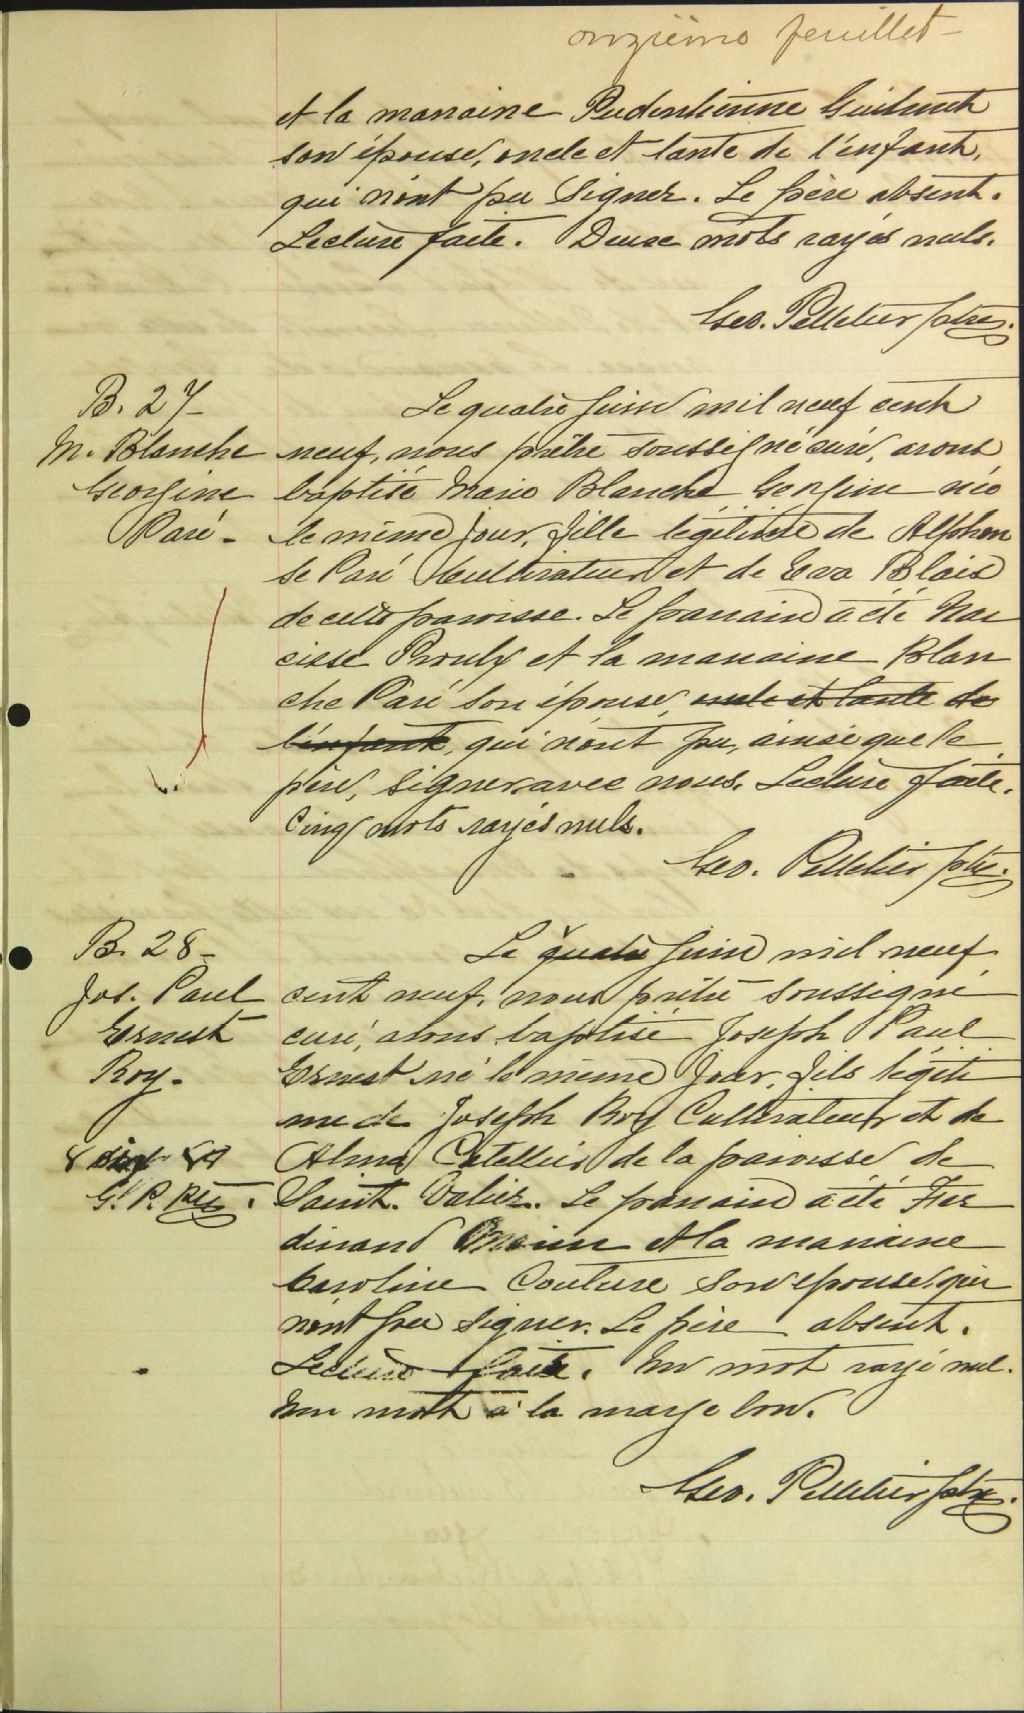 onzième feuillet
et la marraine Pudentienne Guilmet
son épouse, oncle et tante de l'enfant,
qui n'ont pu signer. Le père absent.
Lecture faite. Deux mots rayés nuls.
Geo. Pelletier ptre.
B. 27
M. Blanche
Georgine
Paré
Le quatre juin mil neuf cent
neuf, nous prêtre soussigné curé, avons
baptisé Marie Blanche Georgine née
le même jour, fille légitime de Alphon
se Paré cultivateur et de Eva Blais
de cette paroisse. Le parrain a été Nar
cisse Proulx et la marraine Blan
che Paré son épouse, oncle et tante de
l'enfant, qui n'ont pu, ainsi que le
père, signer avec nous. Lecture faite.
Cinq mots rayés nuls.
Geo. Pelletier ptre.
B. 28
Jos. Paul
Ernest
Roy.
8
G. P. ptre.
Le quatre juin mil neuf
cent neuf, nous prêtre soussigné
curé, avons baptisé Joseph Paul
Ernest né le même jour, fils légiti
me de Joseph Roy Cultivateur et de
Alma Catellier de la paroisse de
Saint. Valier. Le parrain a été Fer
dinand et la marraine
Caroline Couture son épouse qui
n'ont pu signer. Le père absent.
Lecture faite. Un mot rayé nul.
Un mot à la marge bon.
Geo. Pelletier ptre.